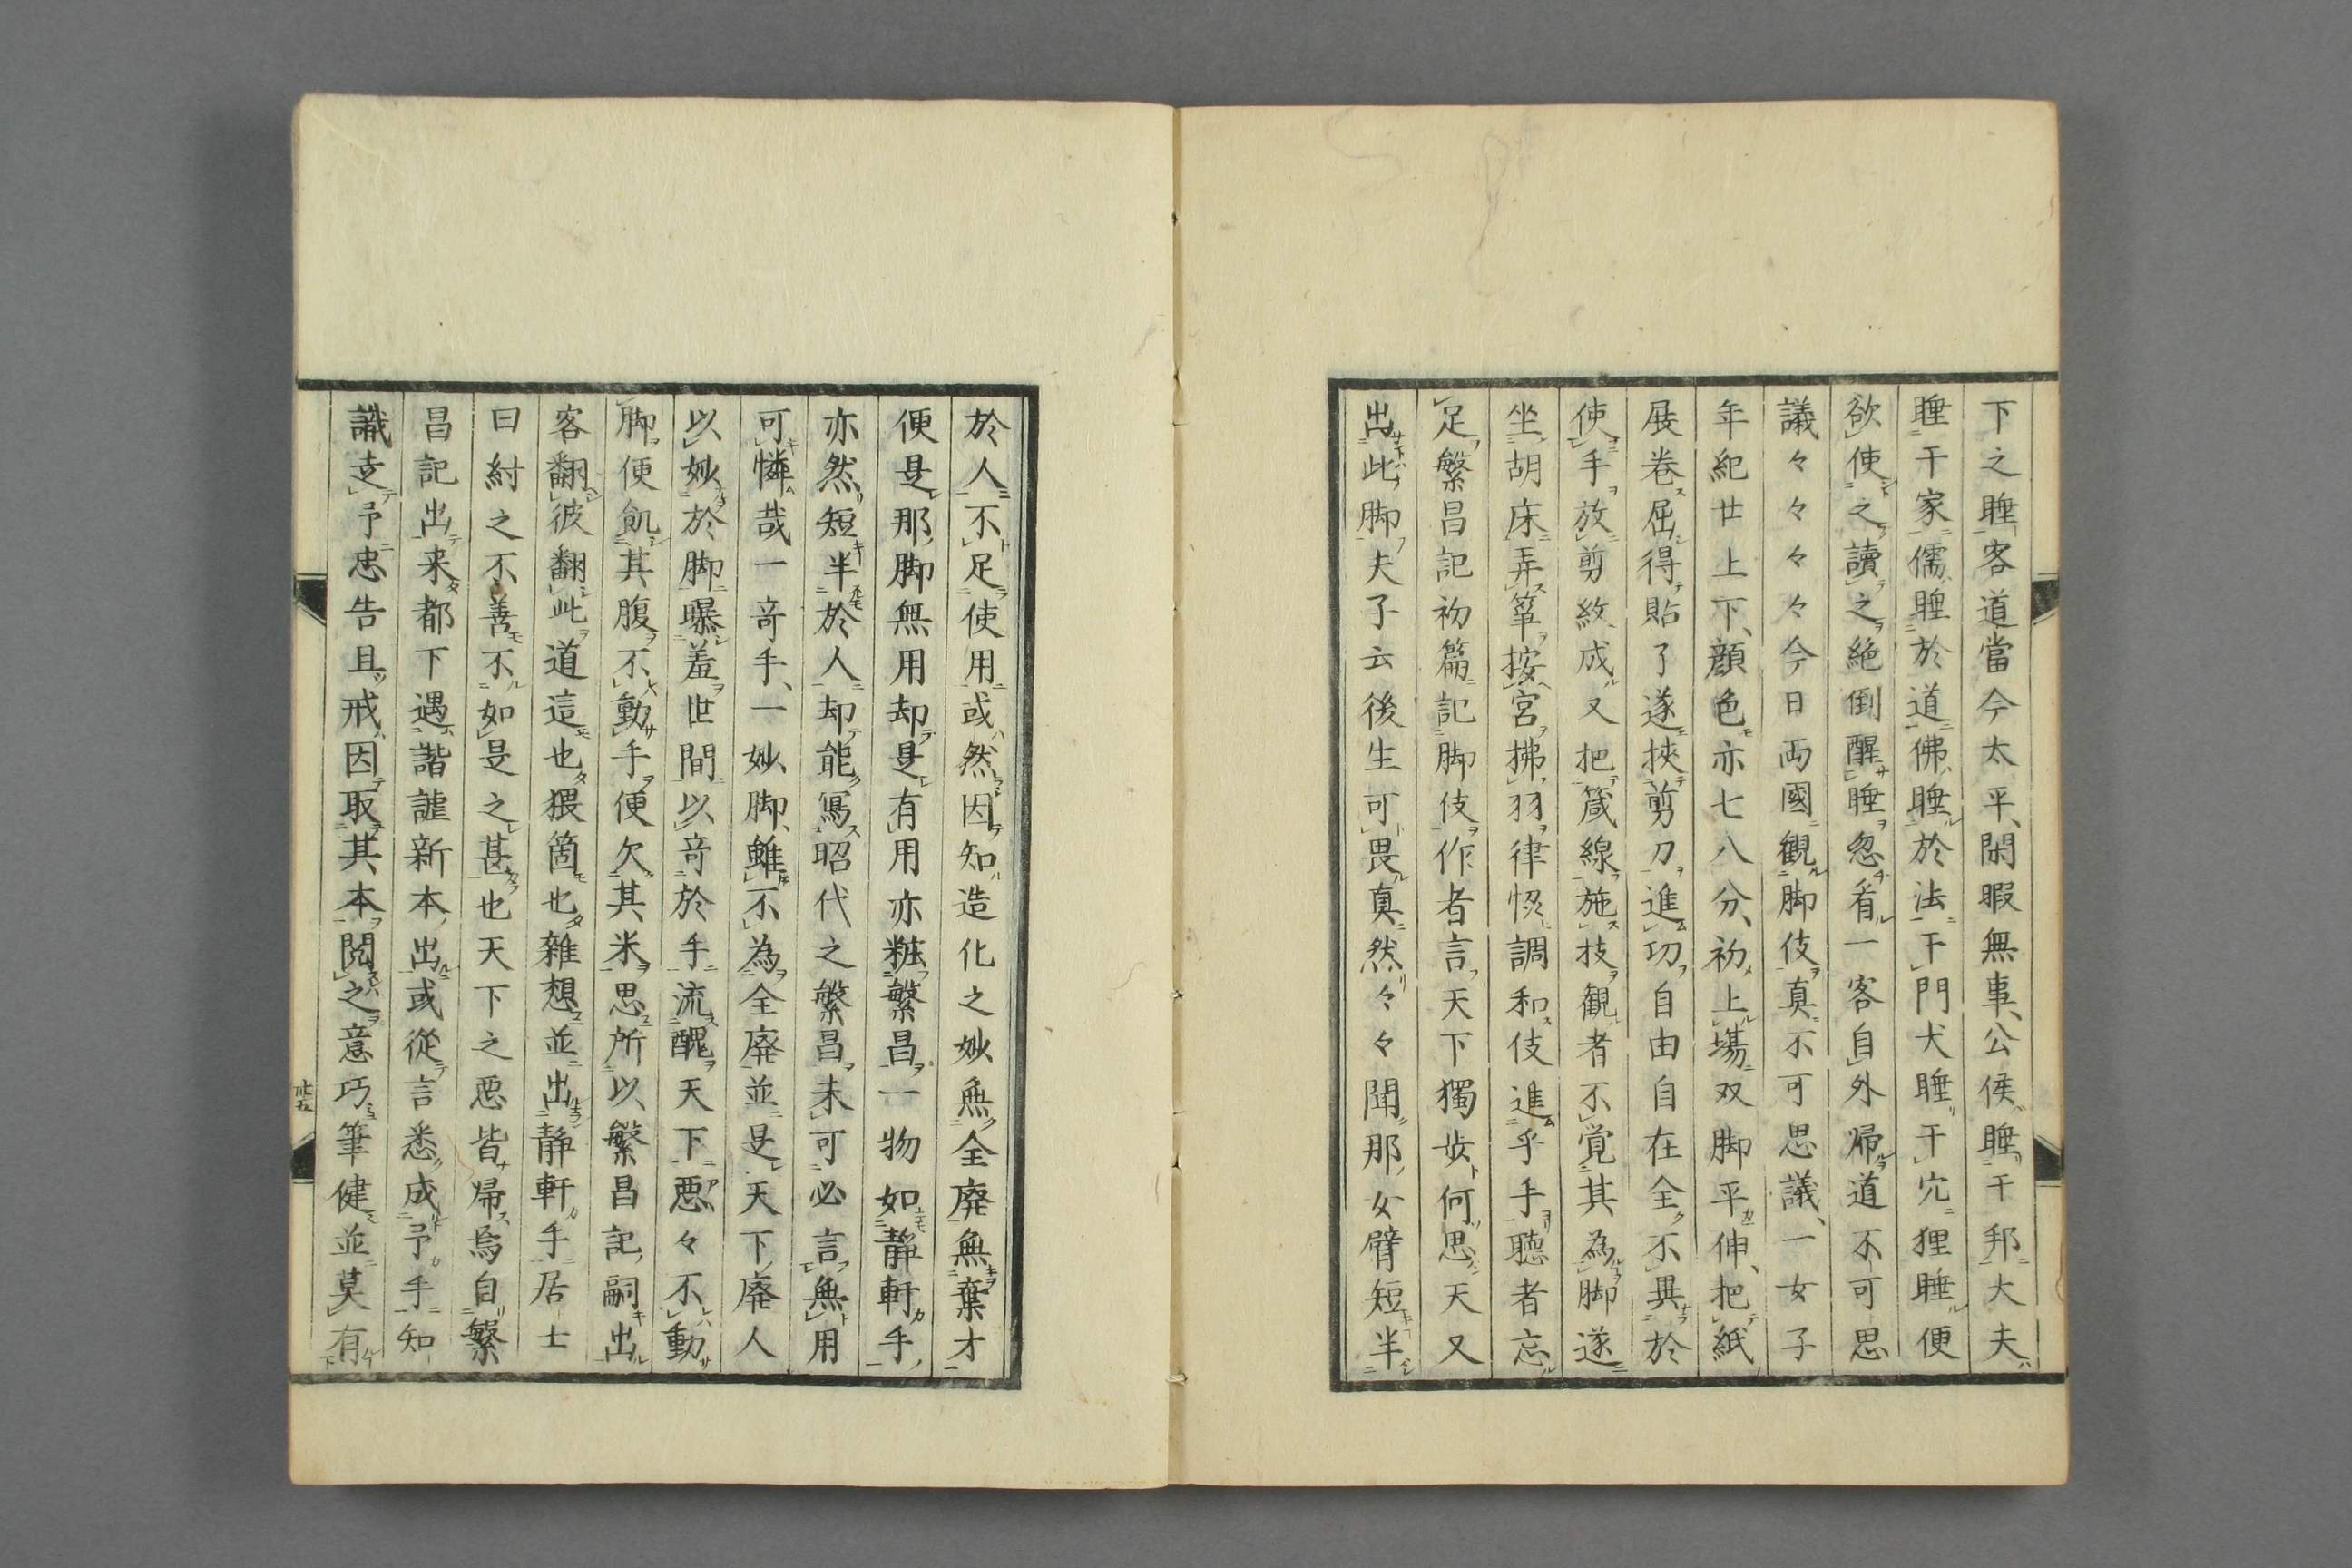 下之睡客道當今太平閑暇無事公侯睡于邦大夫
睡于家儒睡於道佛睡於法于門犬睡于穴狸睡便
欲使之讀之絶倒醒睡忽看一客自外帰道不可思
議々々々々今日両國觀脚伎真不可思議一女子
年紀廿上下顔色亦七八分初上場双脚平伸把紙
展卷屈得貼了遂挾剪刀進功自由自在全不異於
使手放剪紋成又把箴線施技觀者不覚其為脚遂
坐胡床弄箏按宮拂羽律恊調和伎進乎手聴者忘
足繁昌記初篇記脚伎作者言天下獨歩何思天又
出此脚夫子云後生可畏真然々々聞那女臂短半
於人不足使用或然因知造化之妙無全廃無棄才
便是那脚無用却是有用亦粧繁昌一物如静軒手
亦然短半於人却能寫昭代之繁昌未可必言無用
可憐哉一竒手一妙脚雖不為全廃並是天下廃人
以妙於脚曝羞世間以竒於手流醜天下悪々不動
脚便飢其腹不動手便欠其米思所以繁昌記嗣出
客翻彼翻此道這也猥箇也雑想並出静軒手居士
曰紂之不善不如是之甚也天下之悪皆帰焉自繁
昌記出来都下遇諧謔新本出或從言悉成予手知
識支予忠告且戒因取其本閲之意巧筆健並莫有